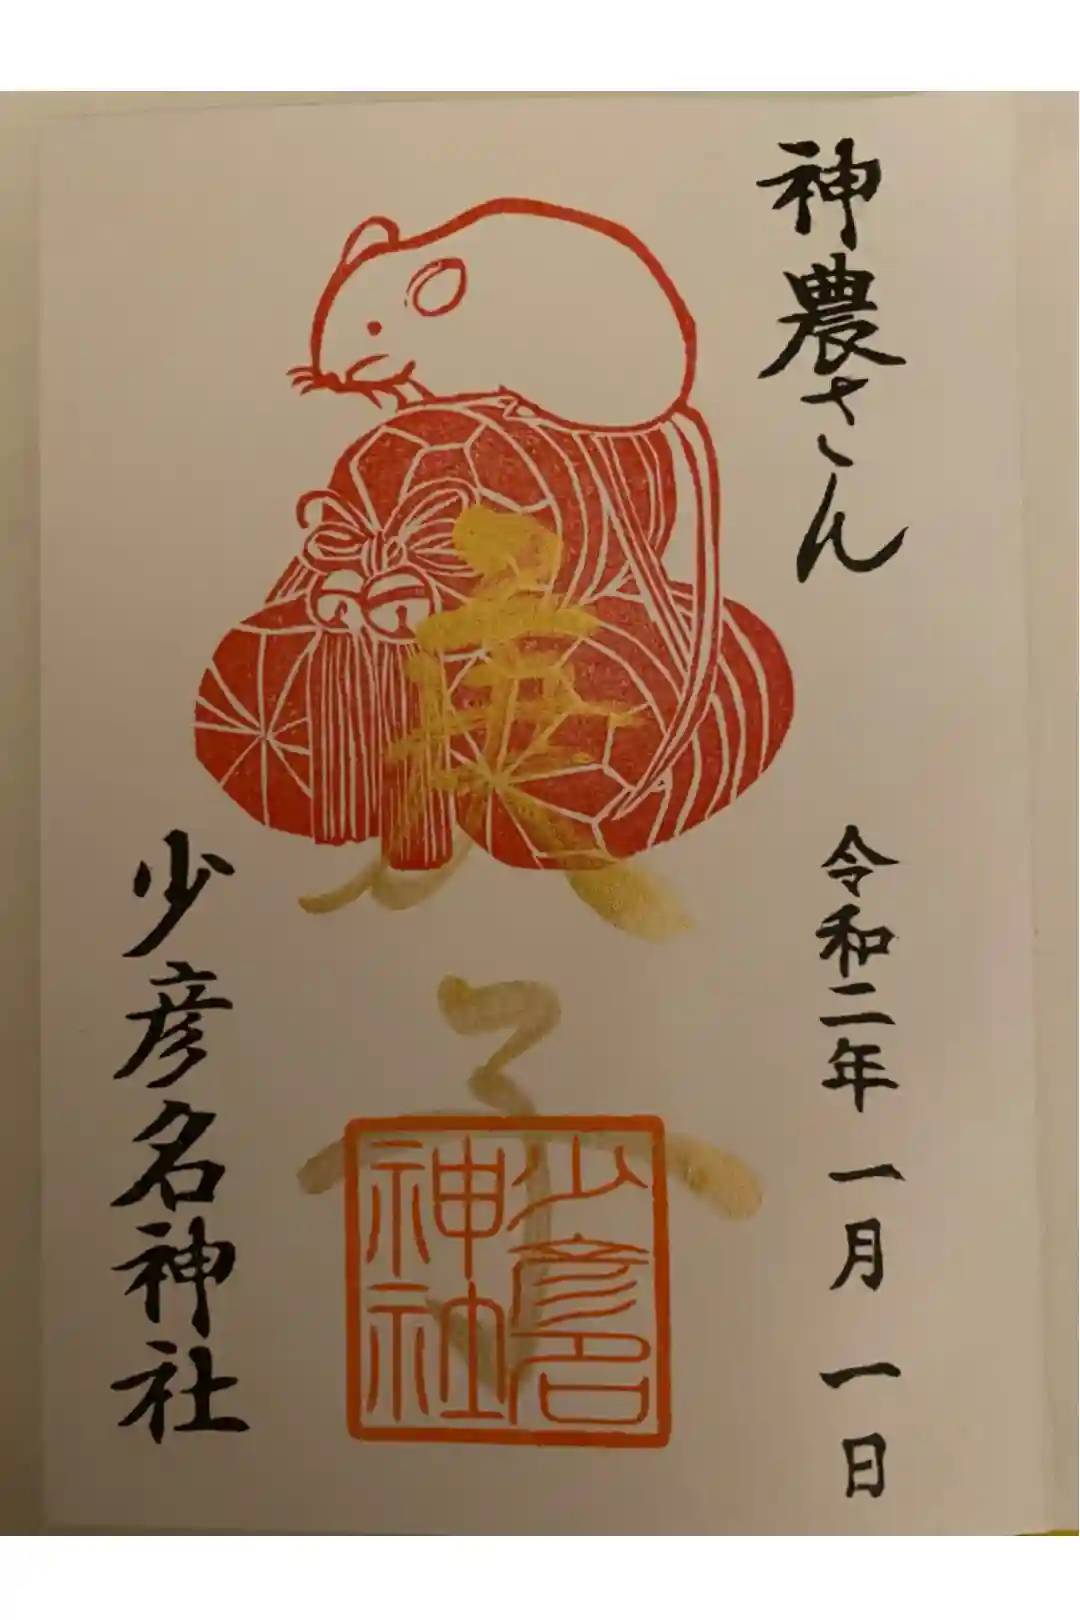 神農さん
令和二年 一月 一日
庚子
少彦名
神社
少彦名神社